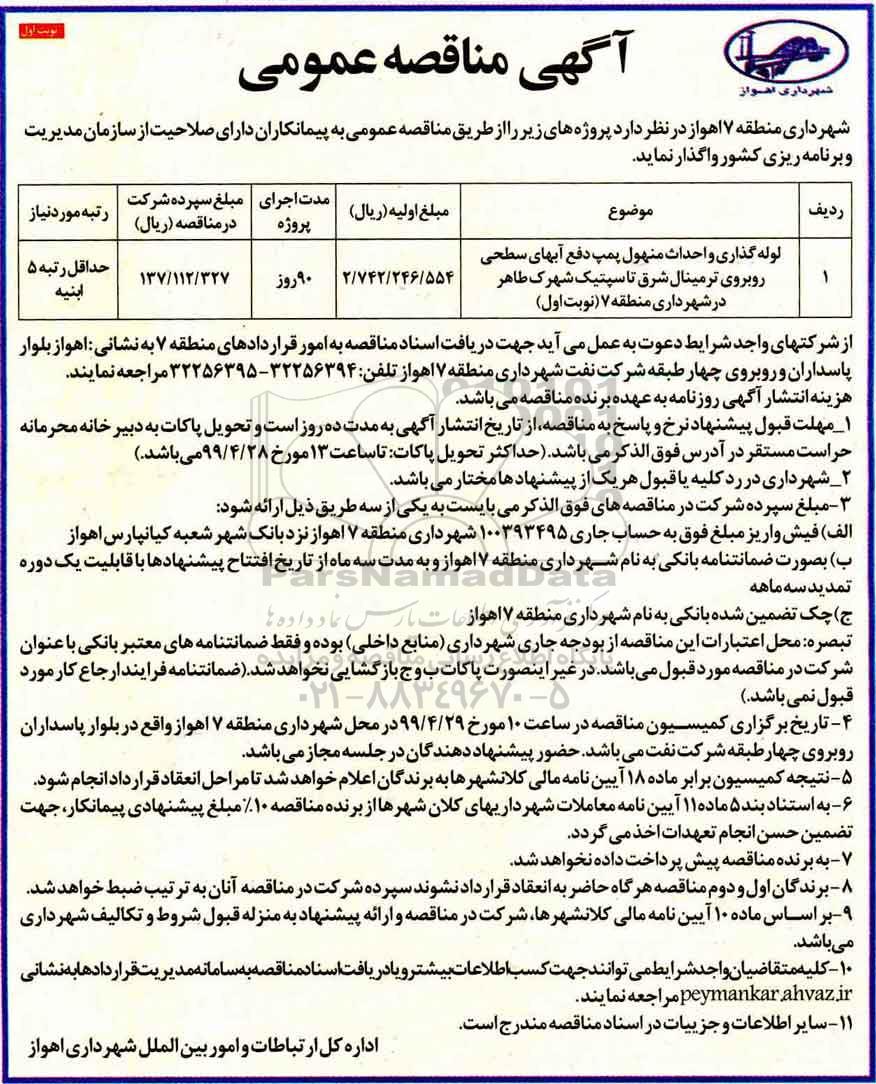 نوبت اول
شهرداری اهواز
آگهی مناقصه عمومی
شهرداری منطقه ۷ اهواز در نظر دارد پروژه های زیر را از طریق مناقصه عمومی به پیمانکاران دارای صلاحیت از سازمان مدیریت
و برنامه ریزی کشور واگذار نماید.
ردیف	موضوع	مبلغ اولیه (ریال)	مدت اجرای پروژه	مبلغ سپرده شرکت در مناقصه (ریال)	رتبه مورد نیاز
۱	لوله گذاری و احداث منهول پمپ دفع آبهای سطحی روبروی ترمینال شرق تا سپتیک شهرک طاهر در شهرداری منطقه ۷ (نوبت اول)	۲/۷۴۲/۲۴۶/۵۵۴	۹۰ روز	۱۳۷/۱۱۲/۳۲۷	حداقل رتبه ۵ ابنیه
از شرکتهای واجد شرایط دعوت به عمل می آید جهت دریافت اسناد مناقصه به امور قراردادهای منطقه ۷ به نشانی: اهواز بلوار
پاسداران و روبروی چهار طبقه شرکت نفت شهرداری منطقه ۷ اهواز تلفن: ۳۲۲۵۶۳۹۴-۳۲۲۵۶۳۹۵ مراجعه نمایند.
هزینه انتشار آگهی روزنامه به عهده برنده مناقصه می باشد.
۱_مهلت قبول پیشنهاد نرخ و پاسخ به مناقصه، از تاریخ انتشار آگهی به مدت ده روز است و تحویل پاکات به دبیر خانه محرمانه
حراست مستقر در آدرس فوق الذکر می باشد. (حداکثر تحویل پاکات: تا ساعت ۱۳ مورخ ۹۹/۴/۲۸ می باشد.)
۲_شهرداری در رد کلیه یا قبول هر یک از پیشنهادها مختار می باشد.
۳-مبلغ سپرده شرکت در مناقصه های فوق الذکر می بایست به یکی از سه طریق ذیل ارائه شود:
الف) فیش واریز مبلغ فوق به حساب جاری ۱۰۰۳۹۳۴۹۵ شهرداری منطقه ۷ اهواز نزد بانک شهر شعبه کیانپارس اهواز
ب) بصورت ضمانتنامه بانکی به نام شهرداری منطقه ۷ اهواز و به مدت سه ماه از تاریخ افتتاح پیشنهادها با قابلیت یک دوره
تمدید سه ماهه
ج) چک تضمین شده بانکی به نام شهرداری منطقه ۷ اهواز
تبصره: محل اعتبارات این مناقصه از بودجه جاری شهرداری (منابع داخلی) بوده و فقط ضمانتنامه های معتبر بانکی با عنوان
شرکت در مناقصه مورد قبول می باشد. در غیر اینصورت پاکات ب و ج بازگشایی نخواهد شد. (ضمانتنامه فرایند ارجاع کار مورد
قبول نمی باشد.)
۴- تاریخ برگزاری کمیسیون مناقصه در ساعت ۱۰ مورخ ۹۹/۴/۲۹ در محل شهرداری منطقه ۷ اهواز واقع در بلوار پاسداران
روبروی چهار طبقه شرکت نفت می باشد. حضور پیشنهاد دهندگان در جلسه مجاز می باشد.
۵- نتیجه کمیسیون برابر ماده ۱۸ آیین نامه مالی کلانشهرها به برندگان اعلام خواهد شد تا مراحل انعقاد قرارداد انجام شود.
۶- به استناد بند ۵ ماده ۱۱ آیین نامه معاملات شهرداریهای کلان شهرها از برنده مناقصه ۱۰٪ مبلغ پیشنهادی پیمانکار، جهت
تضمین حسن انجام تعهدات اخذ می گردد.
۷- به برنده مناقصه پیش پرداخت داده نخواهد شد.
۸- برندگان اول و دوم مناقصه هر گاه حاضر به انعقاد قرارداد نشوند سپرده شرکت در مناقصه آنان به ترتیب ضبط خواهد شد.
۹- بر اساس ماده ۱۰ آیین نامه مالی کلانشهرها، شرکت در مناقصه و ارائه پیشنهاد به منزله قبول شروط و تکالیف شهرداری
می باشد.
۱۰- کلیه متقاضیان واجد شرایط می توانند جهت کسب اطلاعات بیشتر و یا دریافت اسناد مناقصه به سامانه مدیریت قراردادها به نشانی
peymankar.ahvaz.ir مراجعه نمایند.
۱۱- سایر اطلاعات و جزییات در اسناد مناقصه مندرج است.
اداره کل ارتباطات و امور بین الملل شهرداری اهواز
ParsNamadData
پایگاه اطلاع رسانی مناقصه و مزایده
۰۲۱-۸۸۳۴۹۶۷۰-۵